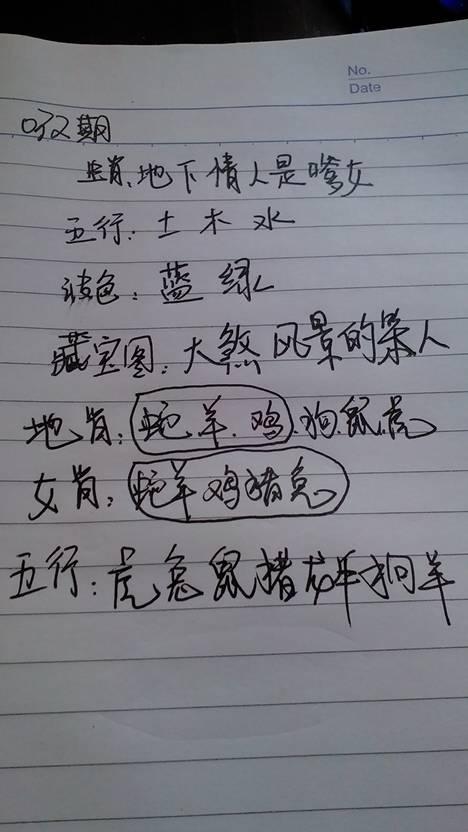 No.
Date
032期
生肖:地下情人是嗲女
五行:土木水
波色:蓝绿
藏宝图:大煞风景的杀人
地肖:蛇羊.鸡.狗.鼠.虎
女肖:蛇羊鸡猪兔
五行:虎兔鼠猪龙牛狗羊